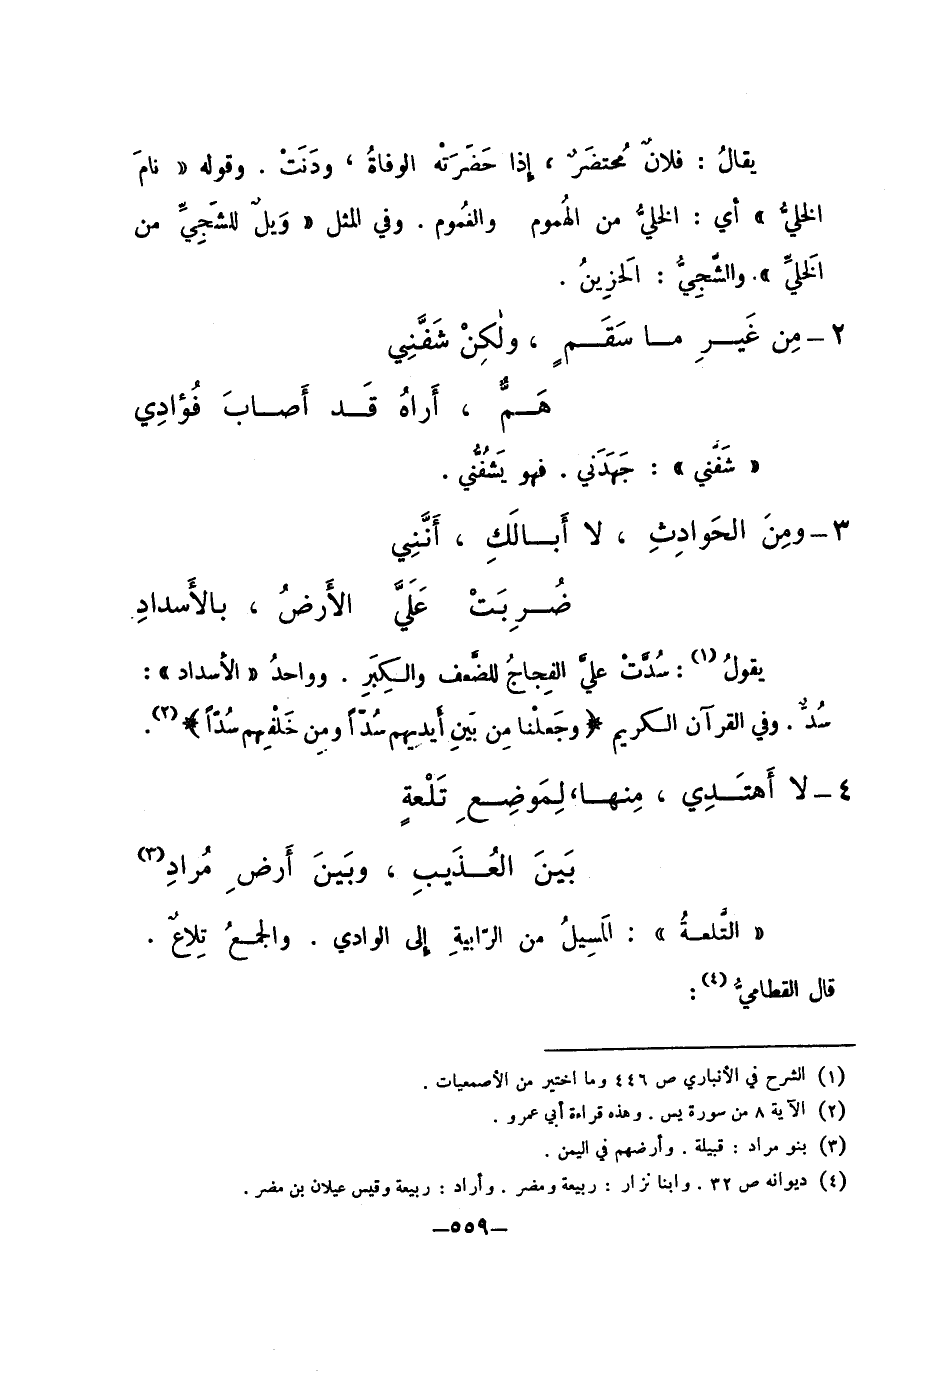 يقالُ : فلانٌ مُحتضَرٌ ، إِذا حَضَرَتْه الوفاةُ ، ودَنَتْ . وقوله « نامَ
الخليُّ » أي : الخليُّ من الهُموم والغُموم . وفي المثل « وَيلٌ للشَّجِيِّ من
الخَليِّ ». والشَّجِيُّ : الحَزِينُ .
٢ – مِن غَيـرِ مـا سَقَـمٍ ، ولٰكِنْ شَفَّنِي
هَـمٌّ ، أَراهُ قَـد أَصـابَ فُؤادِي
« شَفَّني » : جَهَدَني . فهو يَشُفُّني .
٣ – ومِنَ الحَوادِثِ ، لا أَبـالَكِ ، أَنَّنِي
ضُـرِبَتْ عَلَيَّ الأَرضُ ، بالأَسدادِ
يقولُ (١) : سُدَّتْ عليَّ الفِجاجُ للضَّعف والكِبَرِ . وواحدُ « الأسداد » :
سُدٌّ . وفي القرآن الكريم ﴿ وجَعلْنا مِن بَينِ أَيديهم سُدّاً ومِن خَلْفِهم سُدّاً ﴾ (٢) .
٤ – لا أَهتَـدِي ، مِنهـا ، لِمَوضِعِ تَلْعةٍ
بَينَ العُـذَيبِ ، وبَينَ أَرضِ مُرادِ (٣)
« التَّلعـةُ » : المَسِيلُ من الرّابيةِ إِلى الوادي . والجمعُ تِلاعٌ .
قال القطاميُّ (٤) :
(١) الشرح في الأنباري ص ٤٤٦ وما اختير من الأصمعيات .
(٢) الآية ٨ من سورة يس . وهذه قراءة أبي عمرو .
(٣) بنو مراد : قبيلة . وأرضهم في اليمن .
(٤) ديوانه ص ٣٢ . وابنا نزار : ربيعة ومضر . وأراد : ربيعة وقيس عيلان بن مضر .
– ٥٥٩ –